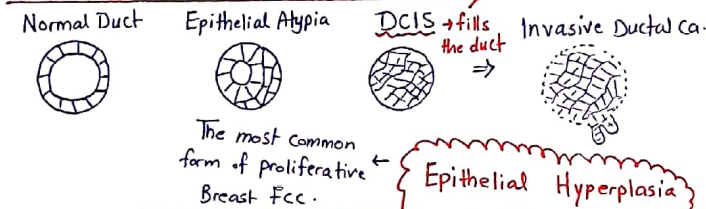 Normal Duct
Epithelial Atypia
DCIS → fills
the duct
⇒
Invasive Ductal Ca.
The most common
form of proliferative ←
Breast Fcc.
Epithelial Hyperplasia